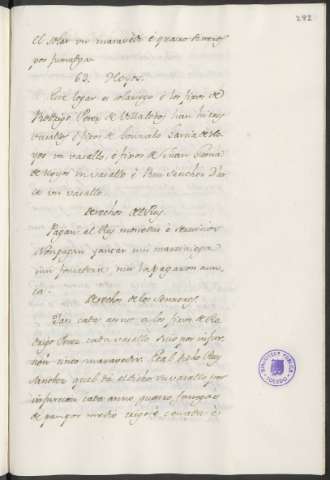 282
el solar un maravedi e quatro dineros
por fumadga.
63. Hoyos.
Este logar es solariego e los fijos de
Rodrigo Perez de Villalobos han hi tres
vasallos e fijos de Gonzalo Garcia de Ho
yos un vasallo, e fijos de Juan Garcia
de Hoyos un vasallo e Rui Sanchez
un vasallo.
Derechos del Rey.
Pagan al Rey monedas e servicios
Non pagan yantar nin martiniega
nin fonsadera nin la pagaron nun
ca.
Derechos de los Senores.
Dan cada anno a los fijos de Ro
drigo Perez cada vasallo suio por infur
cion cinco maravedis. E al dicho Ruy
Sanchez quel dá el dicho su vasallo por
infurcion cada anno, quatro fanegas
de pan por medio trigo e cevada e
BIBLIOTECA PUBLICA
TOLEDO